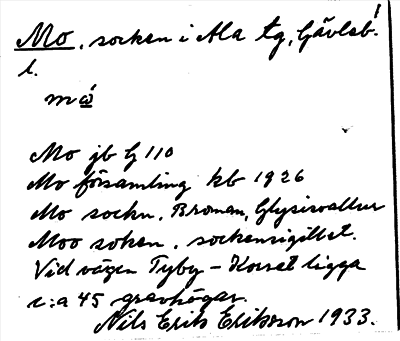 Mo, socken i Ala tg, Gävleb.
l.
mὼ
Mo jb G 110
Mo församling kb 1926
Mo sockn, Broman, Glysisvallur
Moo soken, sockensigillet.
Vid vägen Tyby - Korset ligga
c:a 45 gravhögar.
Nils Erik Eriksson 1933.